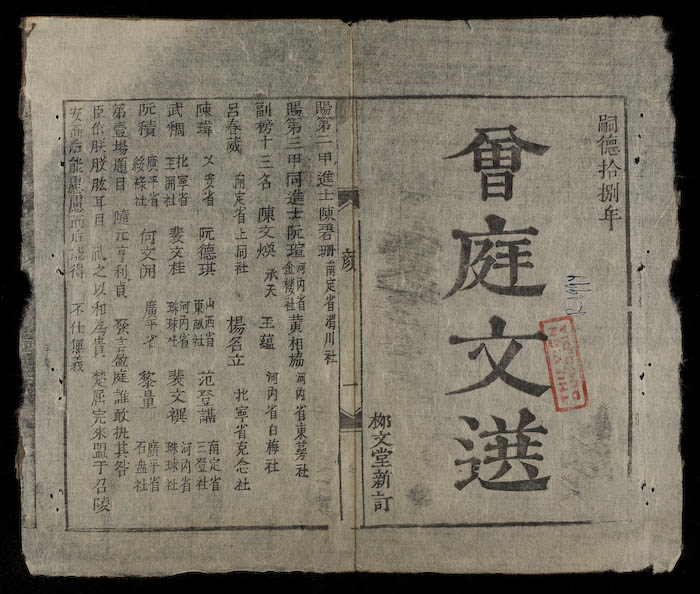 嗣德拾捌年
會庭文選
柳文堂新訂
賜第二甲進士陳碧珊南定省渭川社
賜第三甲同進士阮瑄河内省金縷社黄相協河内省東蓊社
副榜十三名 陳文煥承天 王蘊河内省白梅社
呂春葳南定省上同社 楊名立北寧省克念社
陳瑋乂安省 阮德琪山西省東 社 范登講南定省三登社
武稠北寧省 裴文桂河内省珠球社 裴文禩河内省珠球社
阮積廣平省綏祿社 何文開廣平省 黎量廣平省石盘社
第壹場題目 隨元亨利貞 發言盈庭誰敢执其咎
臣作朕股肱耳目 礼之以和為貴 楚屈完來盟于召陵
安而后能慮慮而后能得 不仕無義